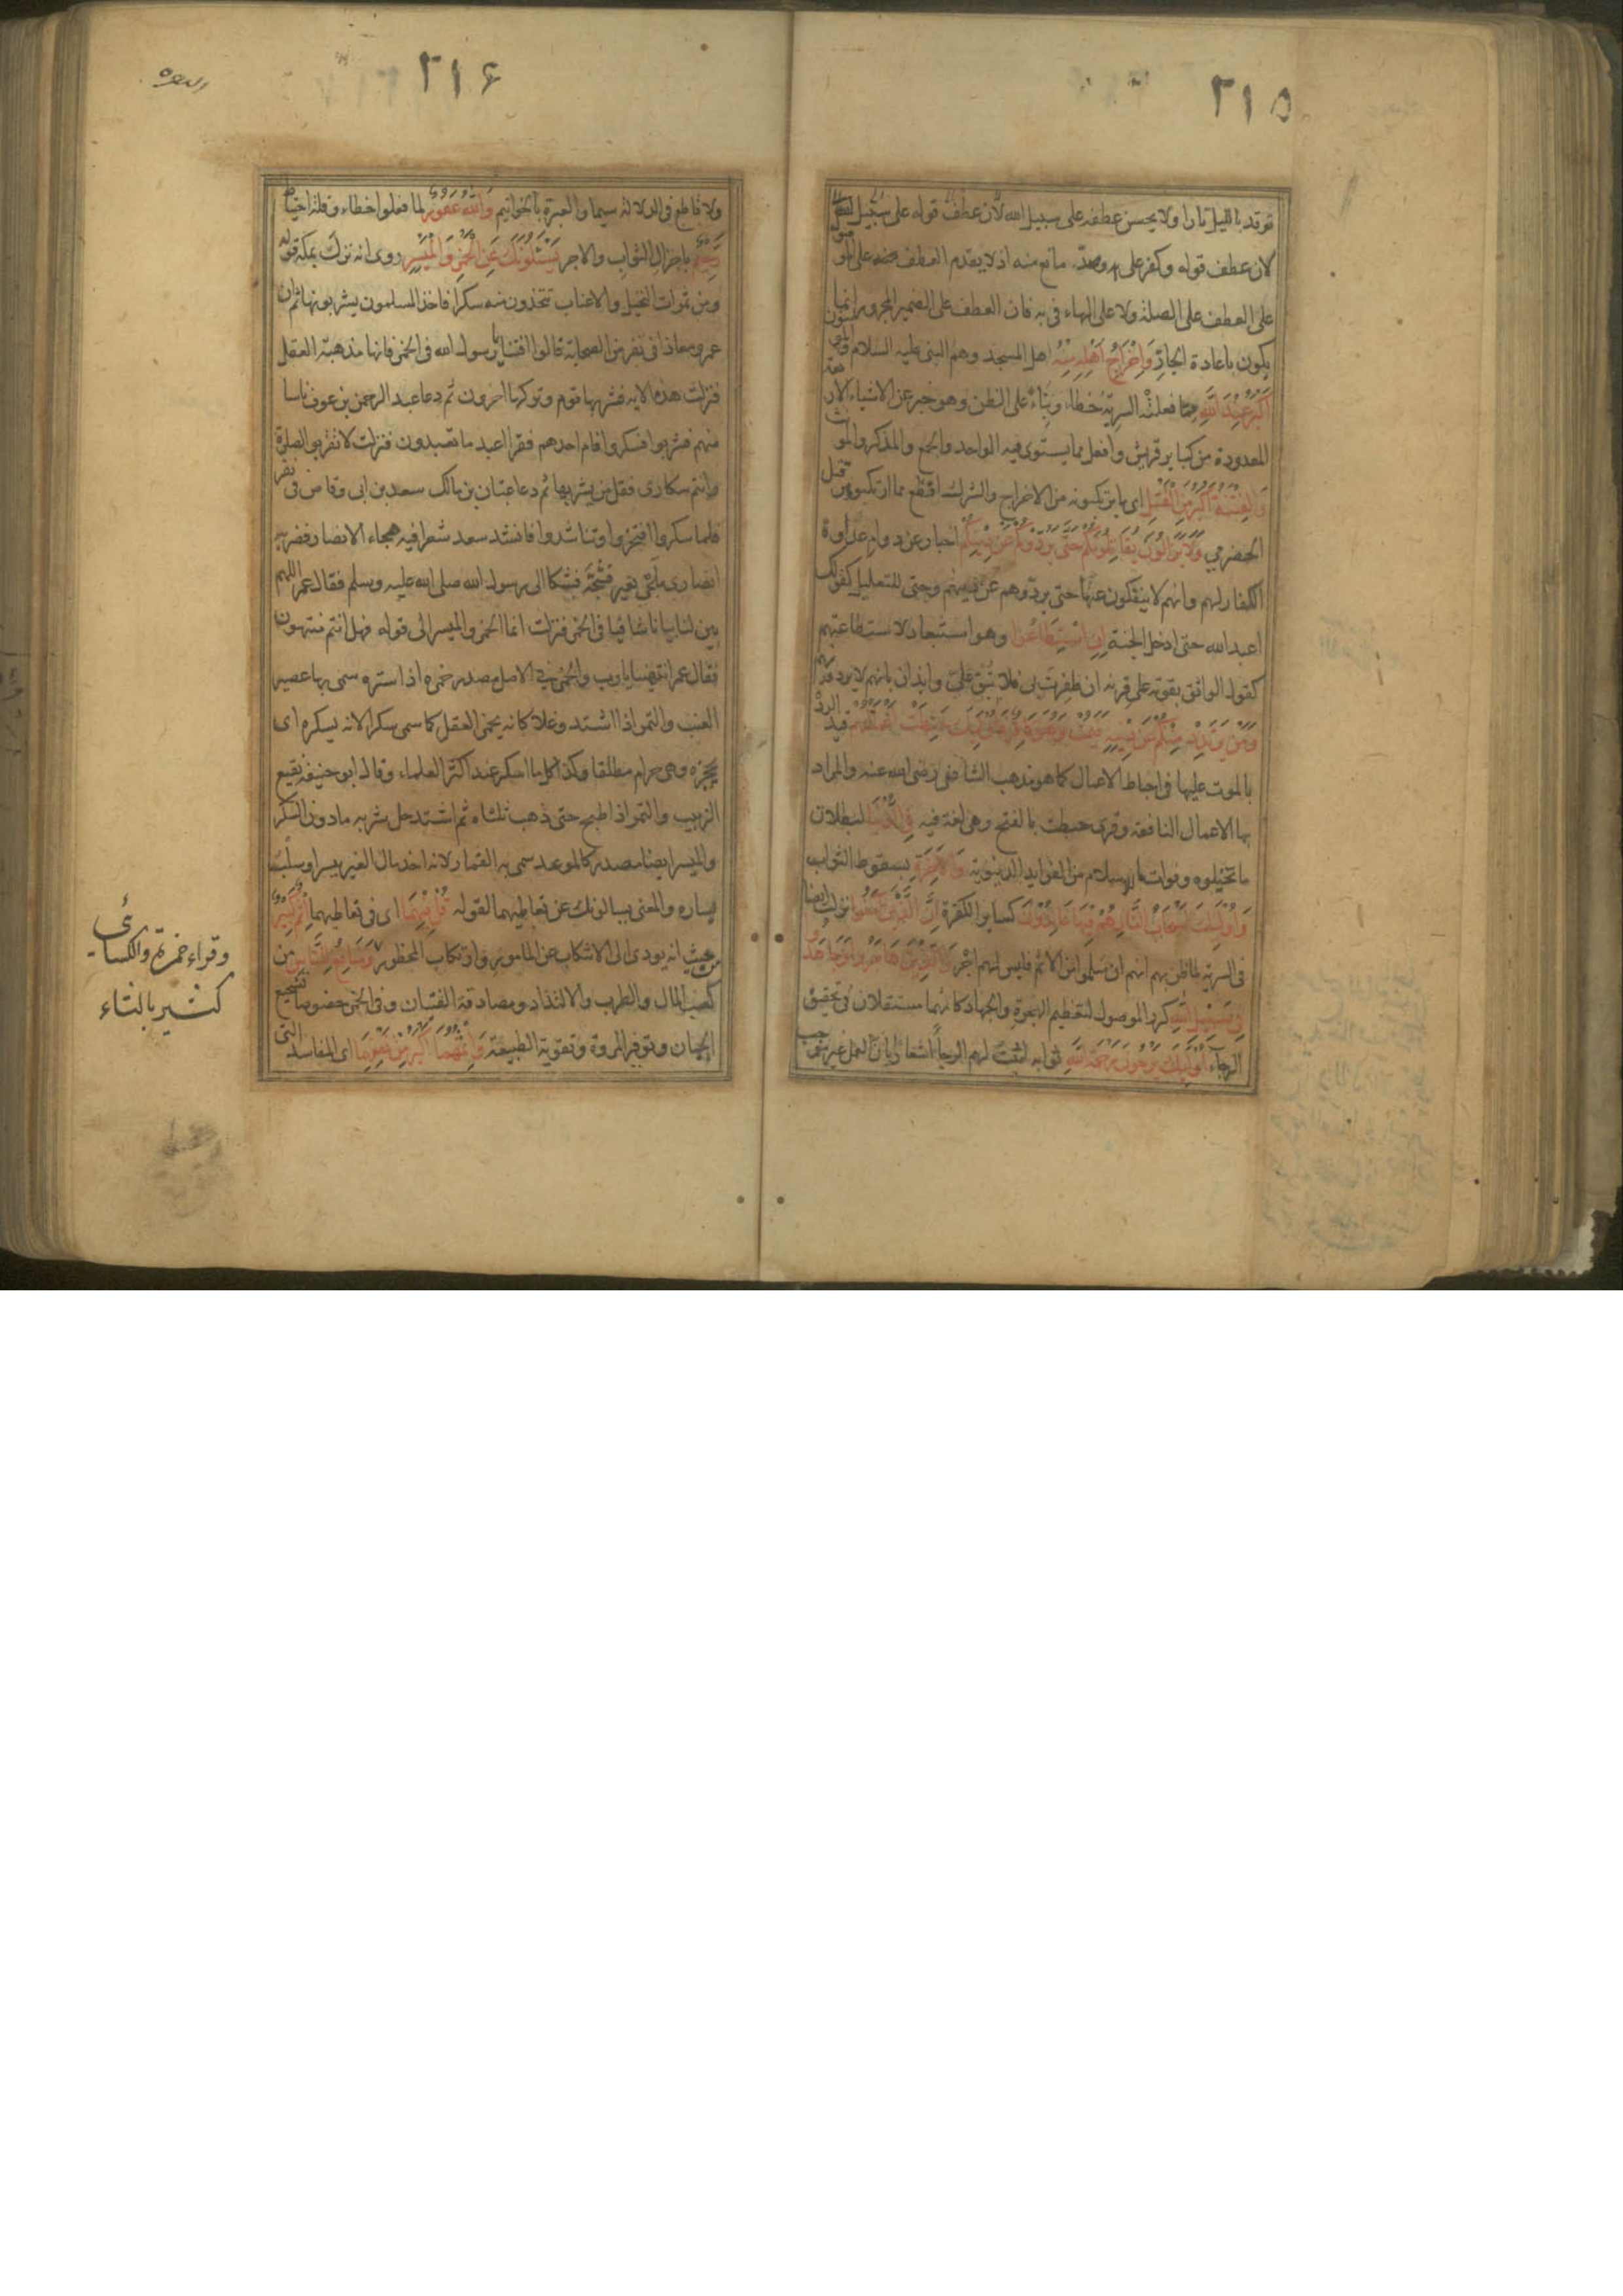 ٢١٥
توقد بالليل نارا ولا يحسن عطفه على سبيل الله لأن عطف قوله على سبيل
لان عطف قوله وكفر على وصدّ مانع منه اذ لا يقدم العطف على
على العطف على الصلة ولا على الهاء فى به فان العطف على الضمير المجرور انما
يكون باعادة الجارّ وَاِخْرَاجُ اَهْلِهِ مِنْهُ اهل المسجد وهم النبى عليه السلام
اَكْبَرُ عِنْدَ اللهِ مما فعلته السريّة خطاء وبناءً على الظن وهو خبر عن الاشياء الار
المعدودة من كباير قريش وافعل مما يستوى فيه الواحد والجمع والمذكر والمو
وَالْفِتْنَةُ اَكْبَرُ مِنَ الْقَتْلِ اى ما يرتكبونه من الاخراج والشرك افظع مما ارتكبوه من قتل
الحضرمي وَلَا يَزَالُونَ يُقَاتِلُونَكُمْ حَتَّى يَرُدُّوكُمْ عَنْ دِينِكُمْ اخبار عن دوام عداوة
الكفار لهم وانهم لا ينفكون عنها حتى يردّوهم عن دينهم وحتى للتعليل كقولك
اعبد الله حتى ادخل الجنة اِنِ اسْتَطَاعُوا وهو استبعاد لاستطاعتهم
كقول الواثق بقوته على قرنه ان ظفرت بى فلا تبق علىّ وايذان بانهم لا يردونهم
وَمَنْ يَرْتَدِدْ مِنْكُمْ عَنْ دِينِهِ فَيَمُتْ وَهُوَ كَافِرٌ فَاُولَئِكَ حَبِطَتْ اَعْمَالُهُمْ قيد الردّ
بالموت عليها فى احباط الاعمال كما هو مذهب الشافعى رضى الله عنه والمراد
بها الاعمال النافعة وقرى حبطت بالفتح وهى لغة فيه فِى الدُّنْيَا لبطلان
ما تخيلوه وفوات ما للاسلام من الفوايد الدنيوية وَالْاٰخِرَةِ بسقوط الثواب
وَاُولَئِكَ اَصْحَابُ النَّارِ هُمْ فِيهَا خَالِدُونَ كساير الكفرة اِنَّ الَّذِينَ اٰمَنُوا نزلت ايضا
فى السرية لما ظن بهم انهم ان سلموا من الاثم فليس لهم اجر وَالَّذِينَ هَاجَرُوا وَجَاهَدُوا
فِى سَبِيلِ اللهِ كرر الموصول لتعظيم الهجرة والجهاد كانهما مستقلان فى تحقيق
الرجاء اُولَئِكَ يَرْجُونَ رَحْمَةَ اللهِ ثوابه اثبت لهم الرجاء اشعارا بان العمل غير موجب
٢١۶
ولا قاطع فى الدلالة سيما والعبرة بالخواتيم وَاللهُ غَفُورٌ لما فعلوا خطاء وقلة احتياط
رَحِيمٌ باجزال الثواب والاجر يَسْئَلُونَكَ عَنِ الْخَمْرِ وَالْمَيْسِرِ روى انه نزلت بمكة قوله
ومن ثمرات النخيل والاعناب تتخذون منه سكرا فاخذ المسلمون يشربونها ثم ان
عمر ومعاذا فى نفر من الصحابة قالوا افتنا يا رسول الله فى الخمر فانها مذهبة العقل
فنزلت هذه الاية فشربها قوم وتركها اخرون ثم دعا عبد الرحمن بن عوف ناسا
منهم فشربوا فسكروا فقام احدهم فقرا اعبد ما تعبدون فنزلت لا تقربوا الصلوة
وانتم سكارى فقل من يشربها ثم دعا عتبان بن مالك سعد بن ابى وقاص فى نفر
فلما سكروا افتخروا وتناشدوا فانشد سعد شعرا فيه هجاء الانصار فضربه
انصارى بلحى بعير فشجّه فشكا الى رسول الله صلى الله عليه وسلم فقال عمر اللهم
بين لنا بيانا شافيا فى الخمر فنزلت انما الخمر والميسر الى قوله فهل انتم منتهون
فقال عمر انتهينا يا رب والخمر فى الاصل مصدر خمره اذا ستره سمى بها عصير
العنب والتمر اذا اشتد وغلا كانه يخمر العقل كما سمى سكرا لانه يسكره اى
يحجزه وهى حرام مطلقا وكذا كل ما اسكر عند اكثر العلماء وقال ابو حنيفة نقيع
الزبيب والتمر اذا طبخ حتى ذهب ثلثاه ثم اشتد حل شربه ما دون السكر
والميسر ايضا مصدر كالموعد سمى به القمار لانه اخذ مال الغير بيسر او سلب
يساره والمعنى يسالونك عن تعاطيهما لقوله قُلْ فِيهِمَا اى فى تعاطيهما اِثْمٌ كَبِيرٌ
من حيث انه يودى الى الانتكاب عن المامور وارتكاب المحظور وَمَنَافِعُ لِلنَّاسِ من
كسب المال والطرب والالتذاذ ومصادقة الفتيان وفى الخمر خصوصا تشجيع
الجبان وتوفير المروة وتقوية الطبيعة وَاِثْمُهُمَا اَكْبَرُ مِنْ نَفْعِهِمَا اى المفاسد التى
وقراء حمزة والكسائى
كثير بالثاء